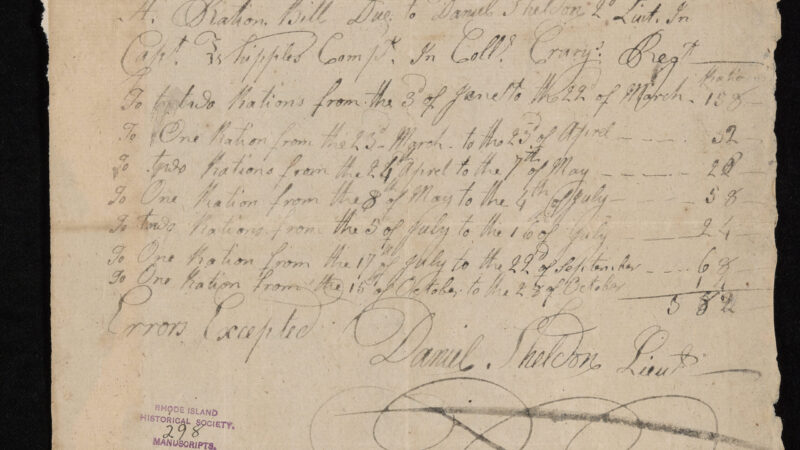 A Ration Bill Due to Daniel Sheldon 2d Lieut. In
Capt. Whipples Compy. In Colls. Crarys. Regt
Rations
To two Rations from the 3d of Jene to the 22d of March - 158
To One Ration from the 23d March to the 23d of Aprel - - - - 32
To two Rations from the 24 Aprel to the 7th of May - - - - 28
To One Ration from the 8th of May to the 4th of July - - - 58
To two Rations from the 5th of July to the 16 of July - - - 24
To One Ration from the 17th of July to the 22d of September - - - 68
To One Ration from the 15th of October to the 28 of October 14
382
Errors Excepted
Daniel Sheldon Lieut
RHODE ISLAND
HISTORICAL SOCIETY.
298
MANUSCRIPTS.